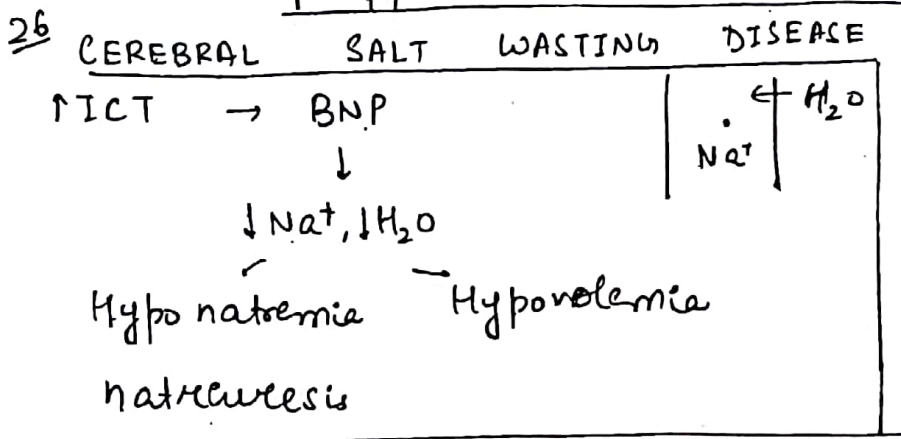 26
CEREBRAL SALT WASTING DISEASE
↑ICT → BNP
← H₂O
Na⁺
↓
↓Na⁺, ↓H₂O
Hyponatremia Hypovolemia
natreuresis